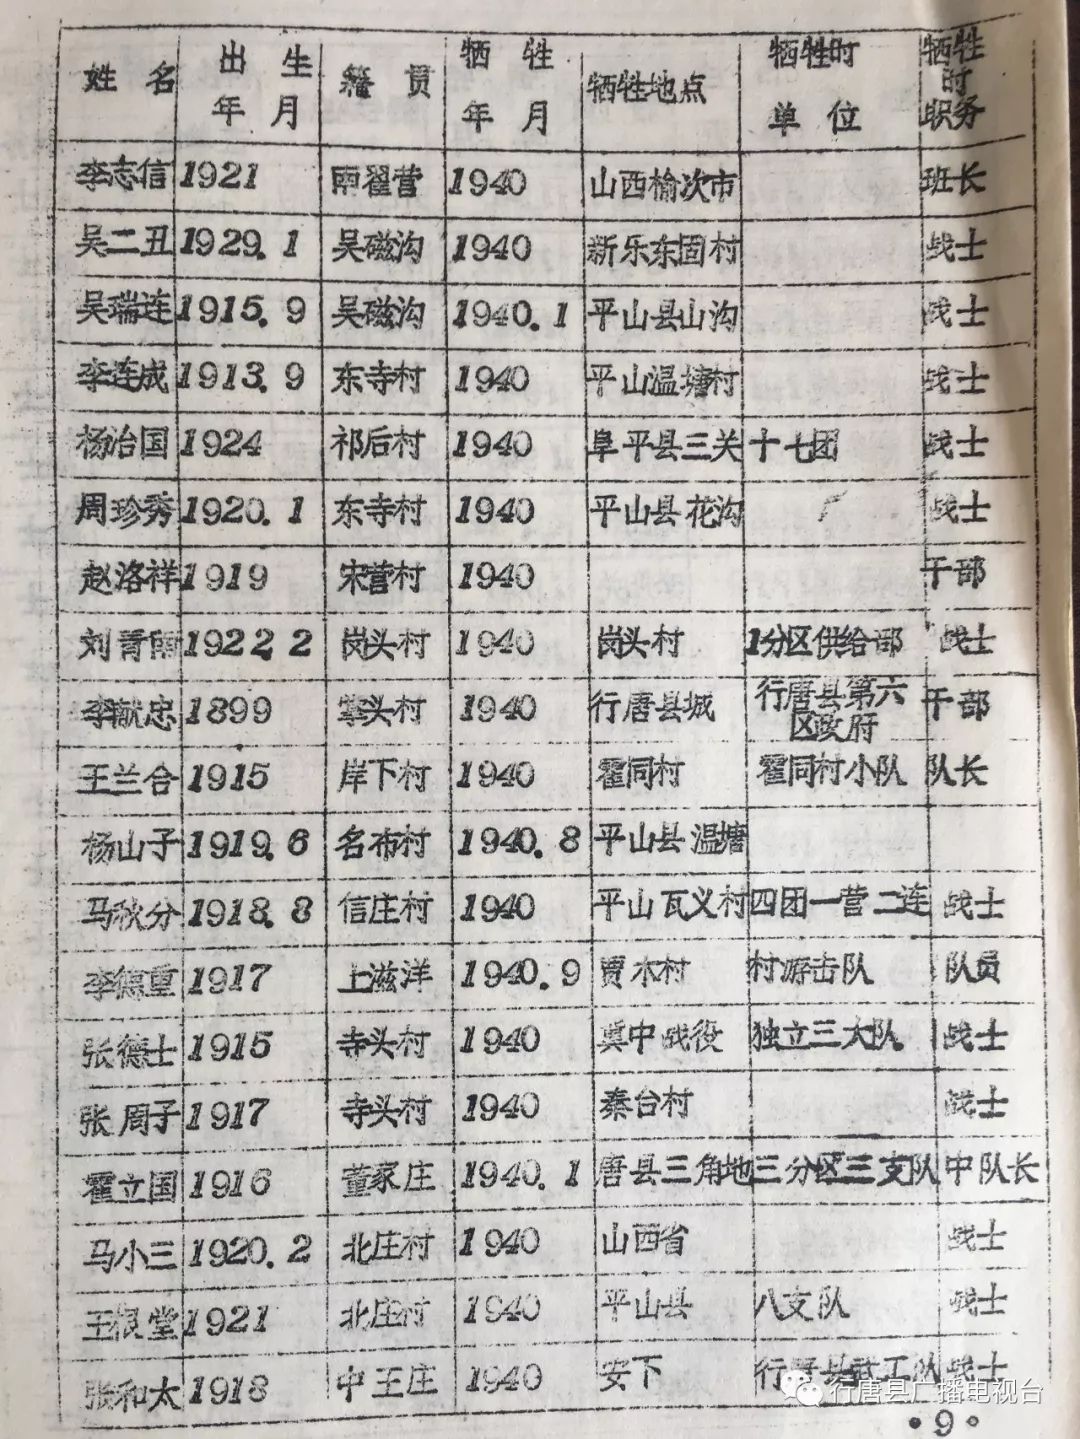 姓名 出生年月 籍贯 牺牲年月 牺牲地点 牺牲时单位 牺牲时职务
李志信 1921 雨翟营 1940 山西榆次市 班长
吴二丑 1929.1 吴磁沟 1940 新乐东固村 战士
吴瑞连 1915.9 吴磁沟 1940.1 平山县山沟 战士
李连成 1913.9 东寺村 1940 平山温塘村 战士
杨治国 1924 祁后村 1940 阜平县三关 十七团 战士
周珍秀 1920.1 东寺村 1940 平山县花沟 战士
赵洛祥 1919 宋营村 1940 干部
刘青雨 1922.2 岗头村 1940 岗头村 1分区供给部 战士
李献忠 1899 掌头村 1940 行唐县城 行唐县第六区政府 干部
王兰合 1915 岸下村 1940 霍同村 霍同村小队 队长
杨山子 1919.6 名布村 1940.8 平山县温塘
马秋分 1918.8 信庄村 1940 平山瓦义村 四团一营二连 战士
李德重 1917 上滋洋 1940.9 贾木村 村游击队 队员
张德士 1915 寺头村 1940 冀中战役 独立三大队 战士
张周子 1917 寺头村 1940 秦台村 战士
霍立国 1916 董家庄 1940.1 唐县三角地 三分区三支队 中队长
马小三 1920.2 北庄村 1940 山西省 战士
王根堂 1921 北庄村 1940 平山县 八支队 战士
张和太 1918 中王庄 1940 安下 行唐县武工队 战士
行唐县广播电视台
•9•